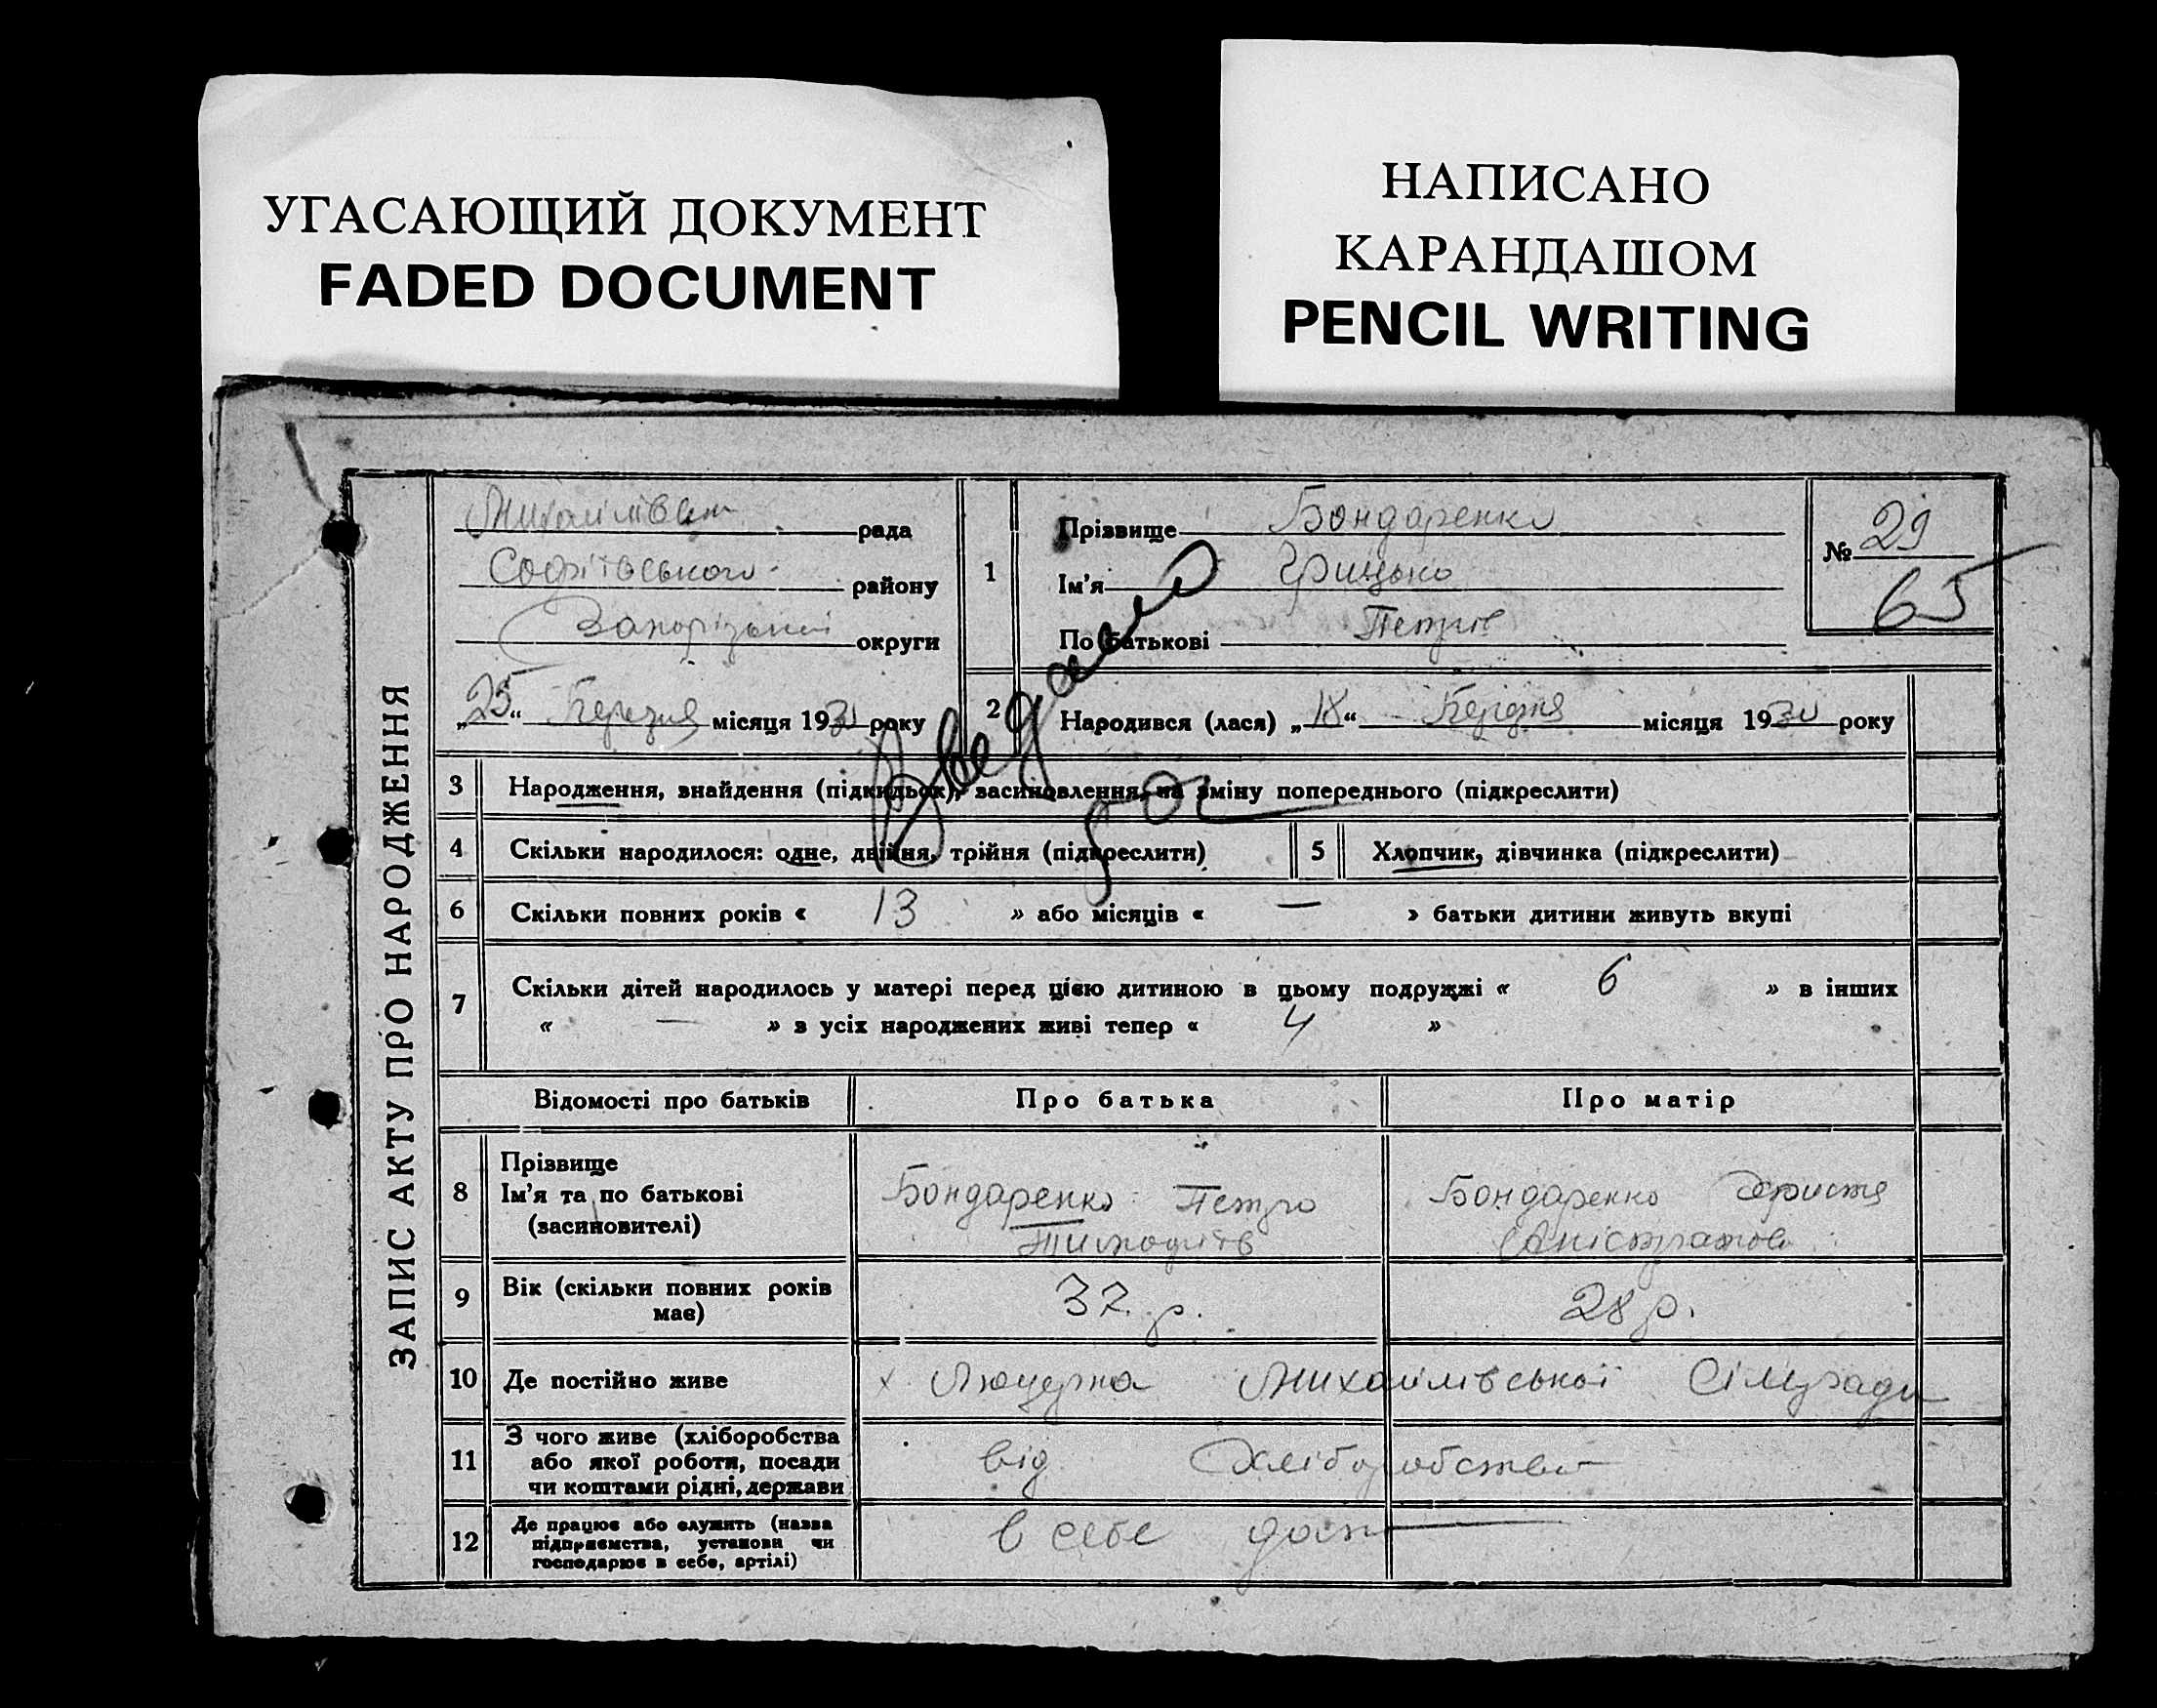 УГАСАЮЩИЙ ДОКУМЕНТ
FADED DOCUMENT
НАПИСАНО
КАРАНДАШОМ
PENCIL WRITING
ЗАПИС АКТУ ПРО НАРОДЖЕННЯ
рада
Софіївського району
Запорізької округи
„25“ Березня місяця 1930 року
1
Прізвище Бондаренко
Ім'я Грицько
По батькові Петрів
№ 29
65
2
Народився (лася) „18“ Березня місяця 1930 року
3 Народження, знайдення (підкидьок), засиновлення, на зміну попереднього (підкреслити)
4 Скільки народилося: одне, двійня, трійня (підкреслити)
5 Хлопчик, дівчинка (підкреслити)
6 Скільки повних років « 13 » або місяців « — » батьки дитини живуть вкупі
7 Скільки дітей народилось у матері перед цією дитиною в цьому подружжі « 6 » в інших
« — » з усіх народжених живі тепер « 4 »
Відомості про батьків
Про батька
Про матір
8
Прізвище
Ім'я та по батькові
(засиновителі)
Бондаренко Петро
Бондаренко Христя
9
Вік (скільки повних років
має)
37 р.
28 р.
10 Де постійно живе
х. Люцерна Михайлівської Сільради
11
З чого живе (хліборобства
або якої роботи, посади
чи коштами рідні, держави
від Хліборобства
12
Де працює або служить (назва
підприємства, установи чи
господарює в себе, артілі)
в себе